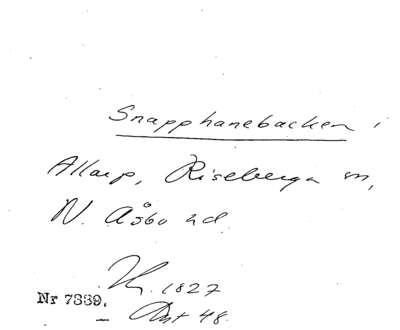 Snapphanebacken i
Allarp, Riseberga sn,
N. Åsbo hd.
1827
Nr 7339.
48.